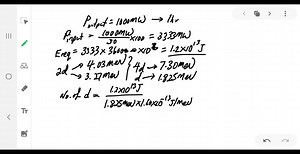 P output = 1000MW → 1hr
P input = 1000MW/30 × 100 = 3333MW
Ereq = 3333×3600 × 10⁶ = 1.2×10¹³J
2d → 4.03MeV } 4d → 7.30MeV
→ 3.27MeV } d → 1.825MeV
No. of d = 1.2×10¹³J / 1.825MeV×1.6×10⁻¹³J/MeV